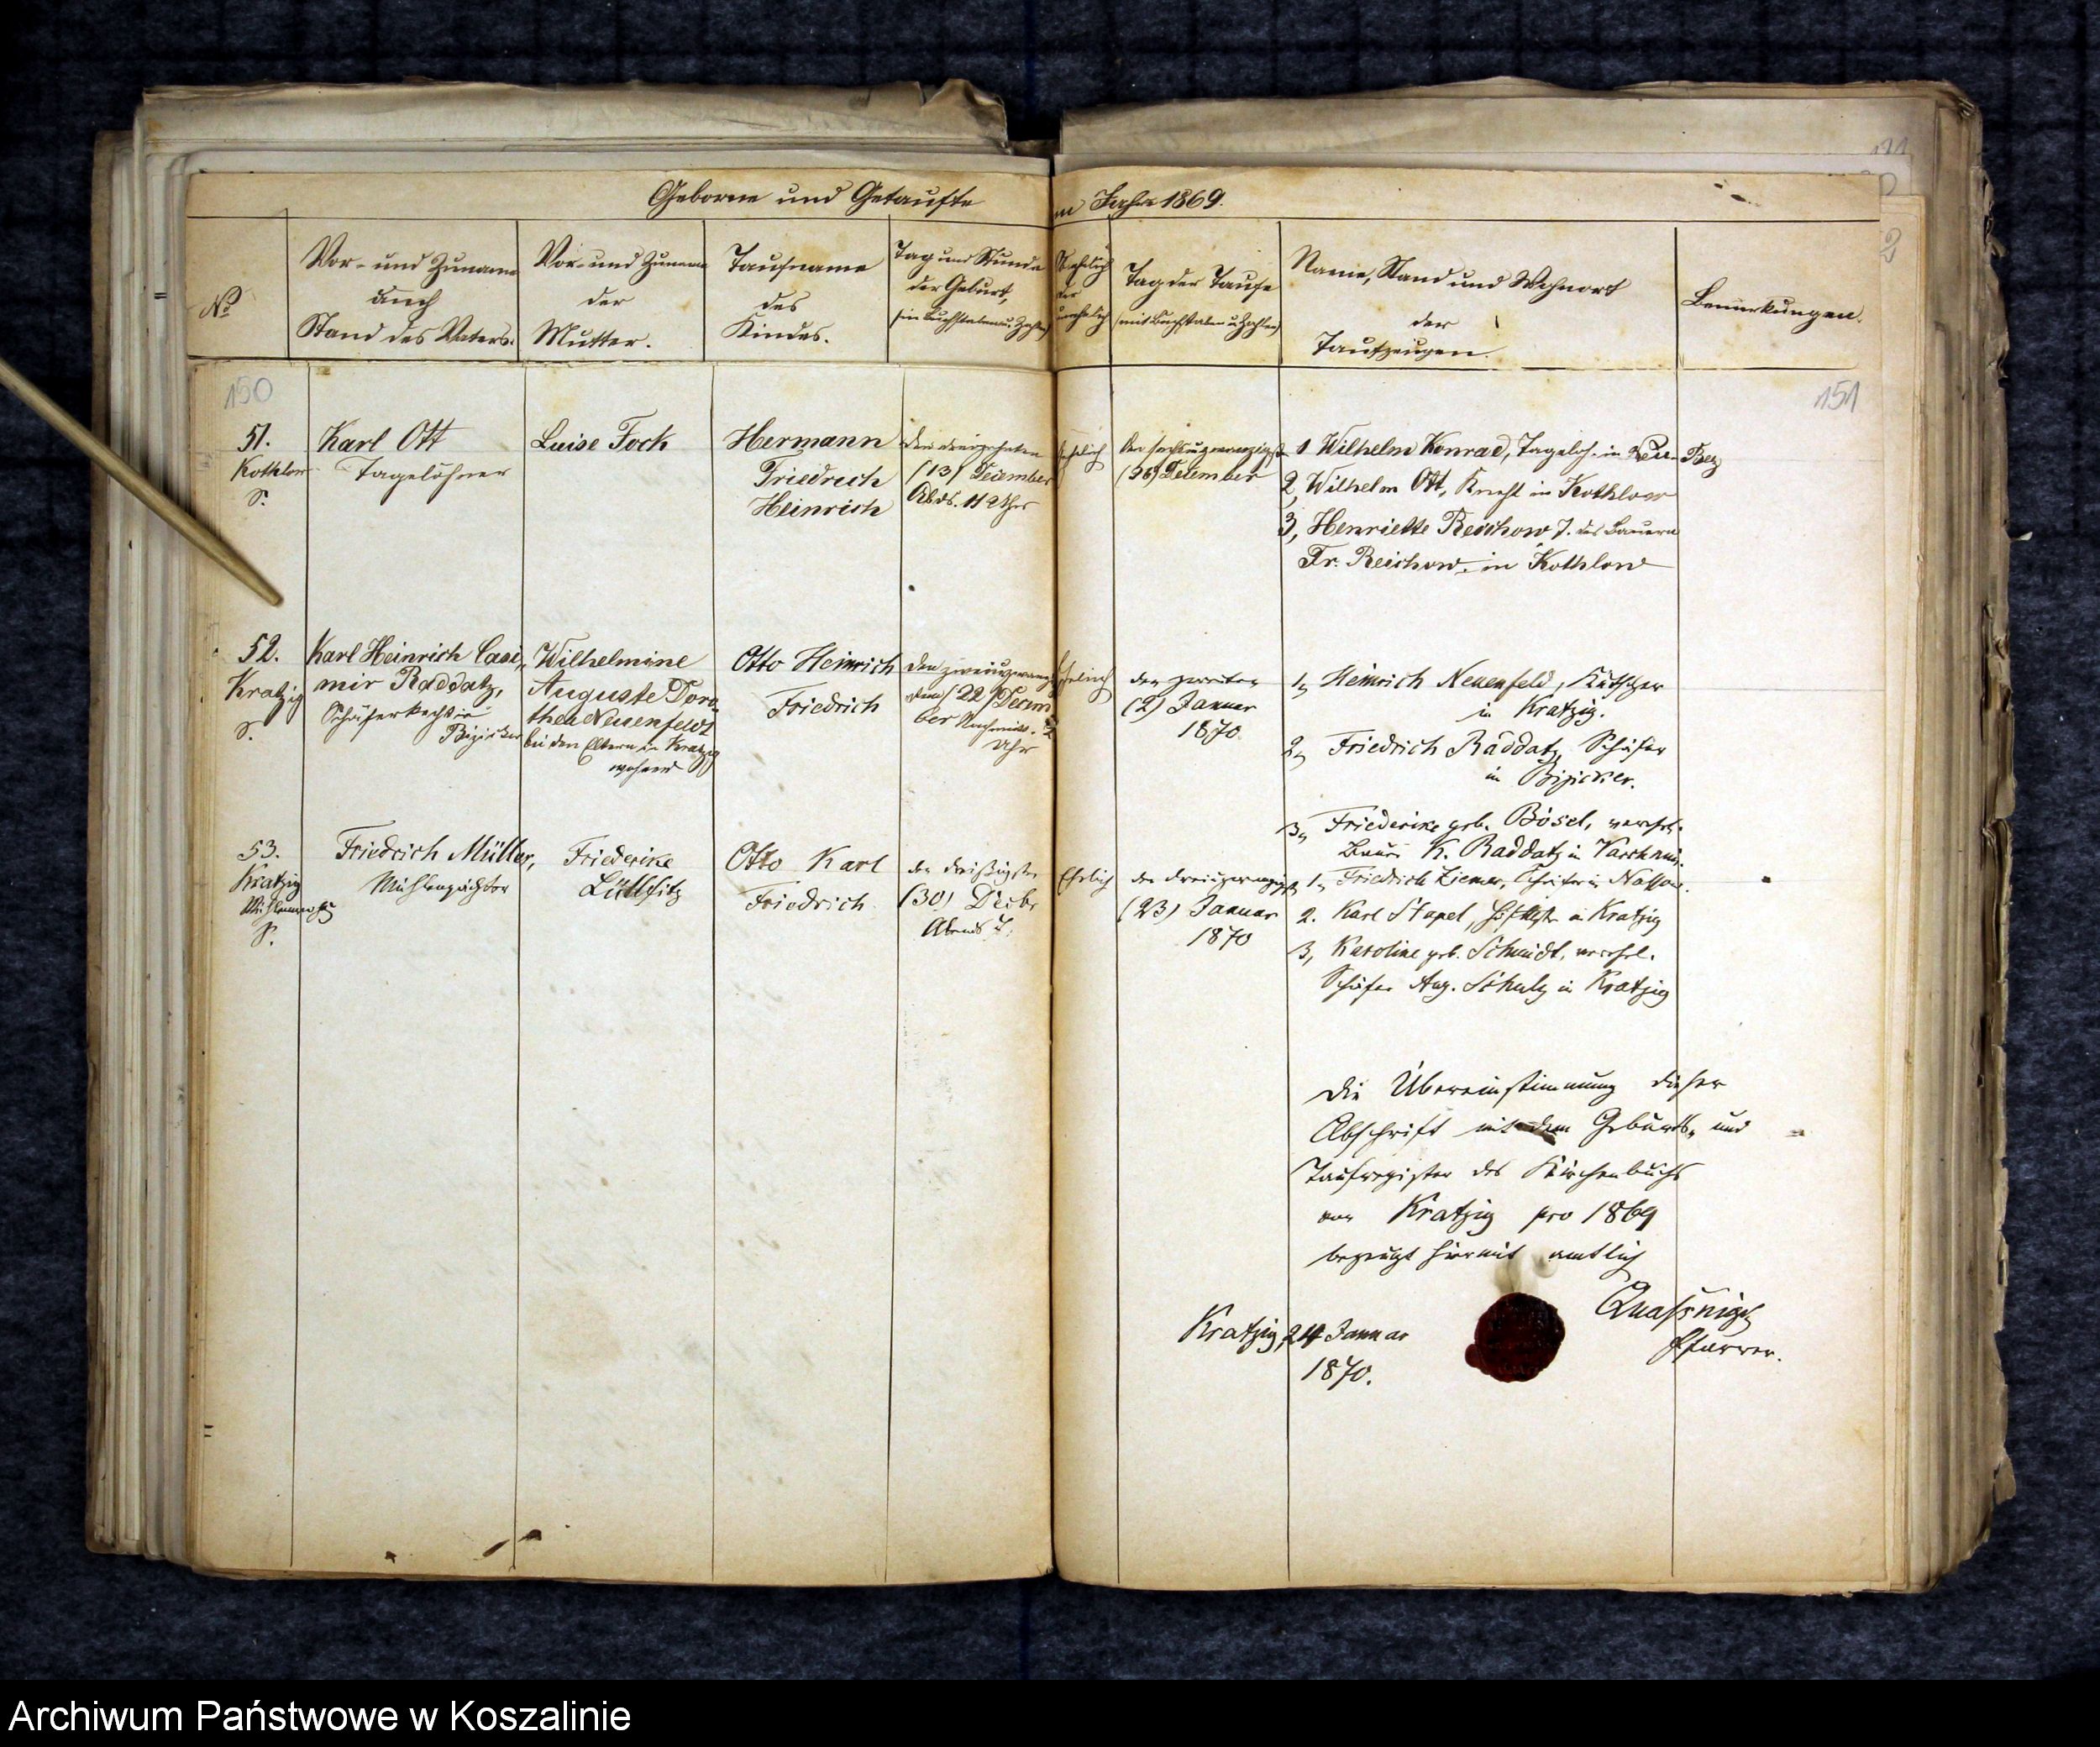 Geborne und Getaufte im Jahre 1869.
No
Vor- und Zuname
auch
Stand des Vaters.
Vor- und Zuname
der
Mutter.
Taufname
des
Kindes.
Tag und Stunde
der Geburt,
(in Buchstaben u. Zahlen)
Ehelich
oder
unehelich
Tag der Taufe
(mit Buchstaben u. Zahlen)
Name, Stand und Wohnort
der
Taufzeugen.
Bemerkungen.
150
151
2
51.
Kothlow
S.
Karl Ott
Tagelöhner
Luise Fock
Hermann
Friedrich
Heinrich
den dreizehnten
(13) December
Abds. 11 Uhr
ehelich
den sechsundzwanzigst
(26) December
1 Wilhelm Konrad, Tagelöh. in Neu-Belz
2, Wilhelm Ott, Knecht in Kothlow
3, Henriette Reichow T. des Bauern
Fr. Reichow in Kothlow
52.
Kratzig
S.
Karl Heinrich Casi-
mir Raddatz,
Schäferknecht in
Biziker
Wilhelmine
Auguste Doro-
thea Neuenfeldt
bei den Eltern in Kratzig
wohnend
Otto Heinrich
Friedrich
den zweiundzwanzig-
sten (22) Decem
ber Nachmitt. 2
Uhr
Ehelich
den zweiten
(2) Januar
1870.
1, Heinrich Neuenfeld, Kutscher
in Kratzig.
2, Friedrich Raddatz, Schäfer
in Biziker.
3, Friederike geb. Bösel, verehel.
Bauer K. Raddatz in Varchmin.
53.
Kratzig
S.
Friedrich Müller,
Mühlenpächter
Friederike
Lüllwitz
Otto Karl
Friedrich
den dreißigsten
(30) Decbr
Abends 7.
Ehelich
den dreiundzwanzigst
(23) Januar
1870
1, Friedrich Ziemer, Schäfer in Nassow.
2. Karl Stapel, in Kratzig
3, Karoline geb. Schmidt, verehel.
Schäfer Aug. Schulz in Kratzig
Die Übereinstimmung dieser
Abschrift mit dem Geburts- und
Taufregister des Kirchenbuchs
von Kratzig pro 1869
bezeugt hiermit amtlich
Kratzig, 24 Januar
1870.
Quaßnigk
Pfarrer.
Archiwum Państwowe w Koszalinie